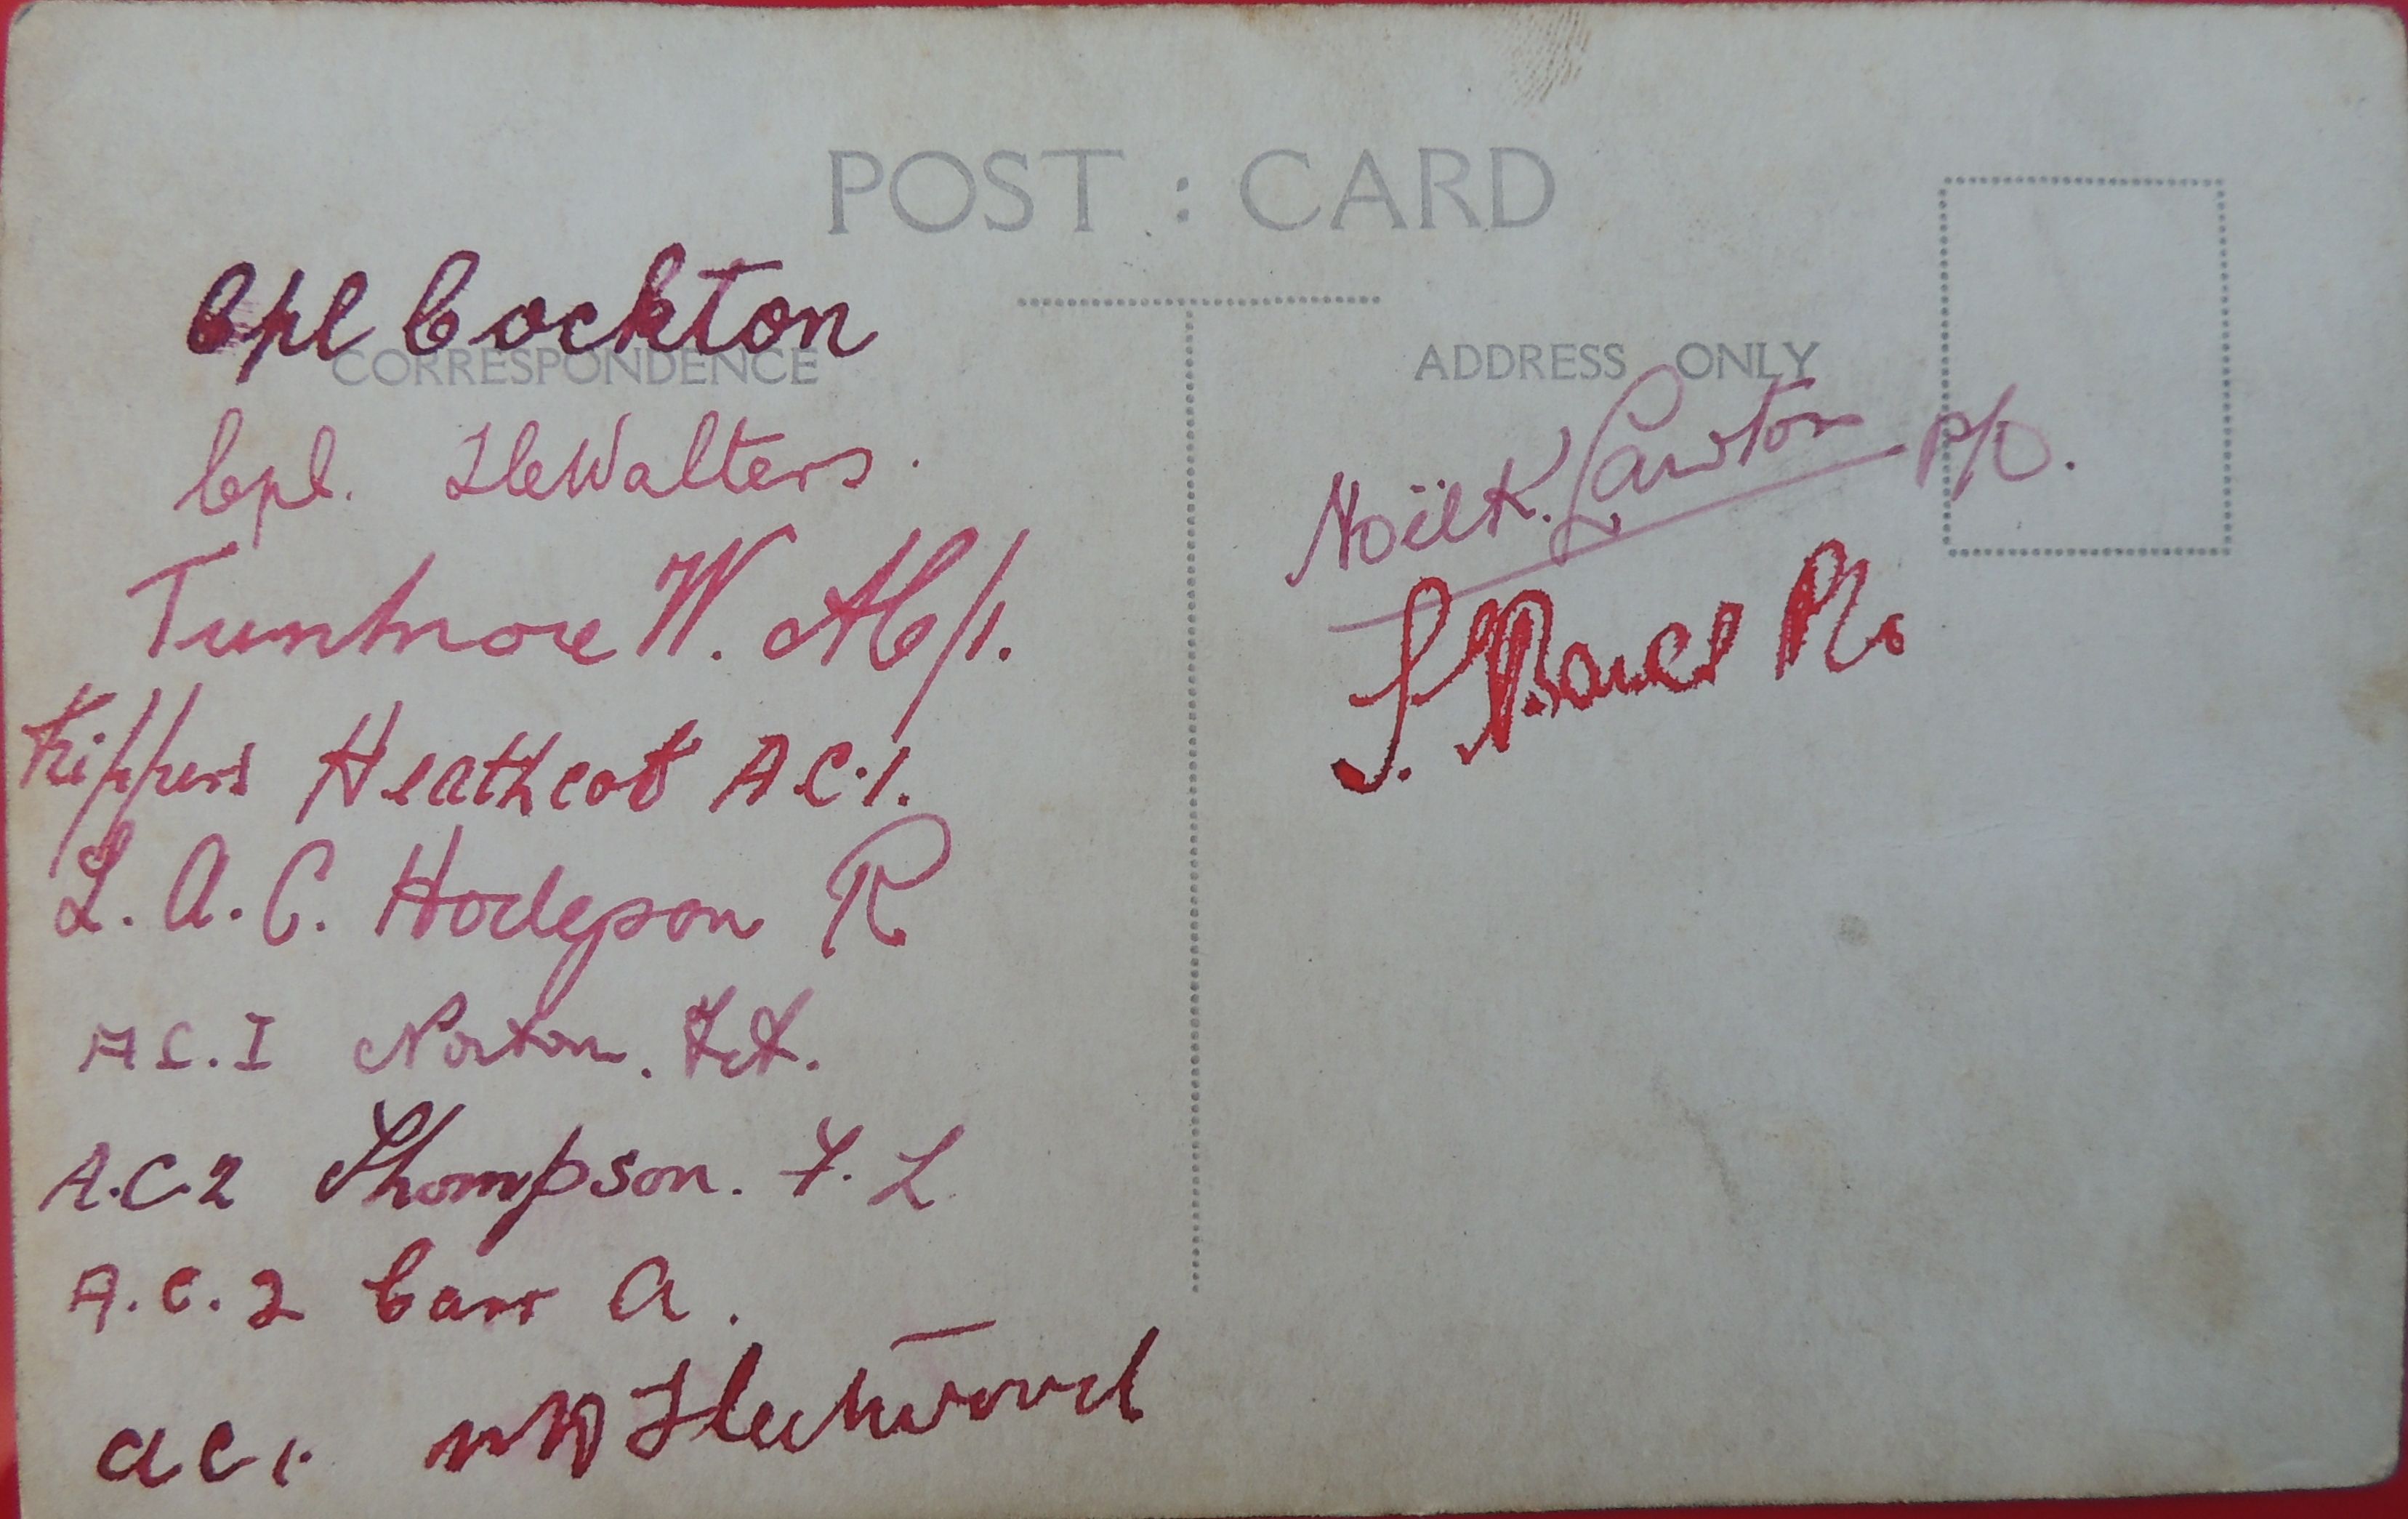 POST : CARD
Cpl Cockton
CORRESPONDENCE
Cpl. Walters.
Tunmore W. AC/1.
Kippers Heathcot A.C.1.
L. A. C. Hodgson R
A C. I Norton.
A.C.2 Thompson. F. L
A.C.2 Carr A.
AC1. Fleetwood
ADDRESS ONLY
Noël K. Lawton P/O.
P/o